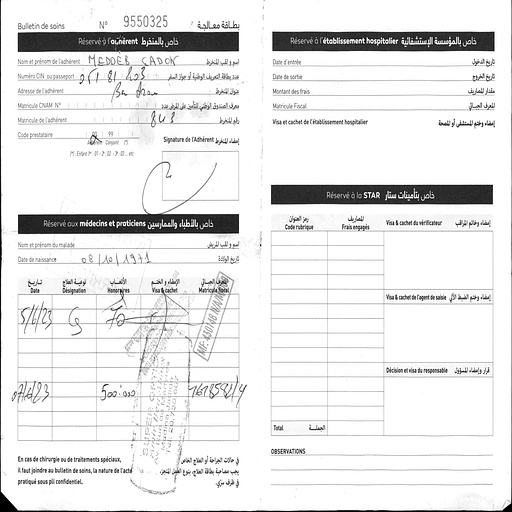 Bulletin de soins N° 9550325 بطاقة معالجة
Réservé à l'adhérent خاص بالمنخرط
Nom et prénom de l'adhérent MEDDEB CADOR اسم و لقب المنخرط
Numéro CIN ou passeport عدد بطاقة التعريف الوطنية أو جواز السفر
Adresse de l'adhérent عنوان المنخرط
Matricule CNAM N° معرف الصندوق الوطني للتأمين على المرض عدد
Matricule de l'adhérent 843 رقم المنخرط
Code prestataire 00 99
Adhérent Conjoint (*)
(*) : Enfant 1er : 01 - 2 : 02 - 3 : 03 ... etc
Signature de l'Adhérent إمضاء المنخرط
Réservé aux médecins et praticiens خاص بالأطباء والممارسين
Nom et prénom du malade اسم و لقب المريض
Date de naissance 08/10/1971 تاريخ الولادة
تاريخ نوعية العلاج الأتعاب الإمضاء و الختم المعرف الجبائي
Date Désignation Honoraires Visa & cachet Matricule fiscal
5/6/23 70
07/6/23 500.000
En cas de chirurgie ou de traitements spéciaux,
il faut joindre au bulletin de soin, la nature de l'acte
pratiqué sous pli confidentiel.
في حالات الجراحة أو العلاج الخاص
يجب مصاحبة بطاقة العلاج، بنوع العمل المنجز
في ظرف سري.
Réservé à l'établissement hospitalier خاص بالمؤسسة الإستشفائية
Date d'entrée تاريخ الدخول
Date de sortie تاريخ الخروج
Montant des frais مقدار المصاريف
Matricule Fiscal المعرف الجبائي
Visa et cachet de l'établissement hospitalier إمضاء وختم المستشفى أو المصحة
Réservé à la STAR خاص بتأمينات ستار
رمز العنوان المصاريف
Code rubrique Frais engagés
Visa & cachet du vérificateur إمضاء وخاتم المراقب
Visa & cachet de l'agent de saisie إمضاء وختم الضبط الآلي
Décision et visa du responsable قرار وإمضاء المسؤول
Total الجملة
OBSERVATIONS